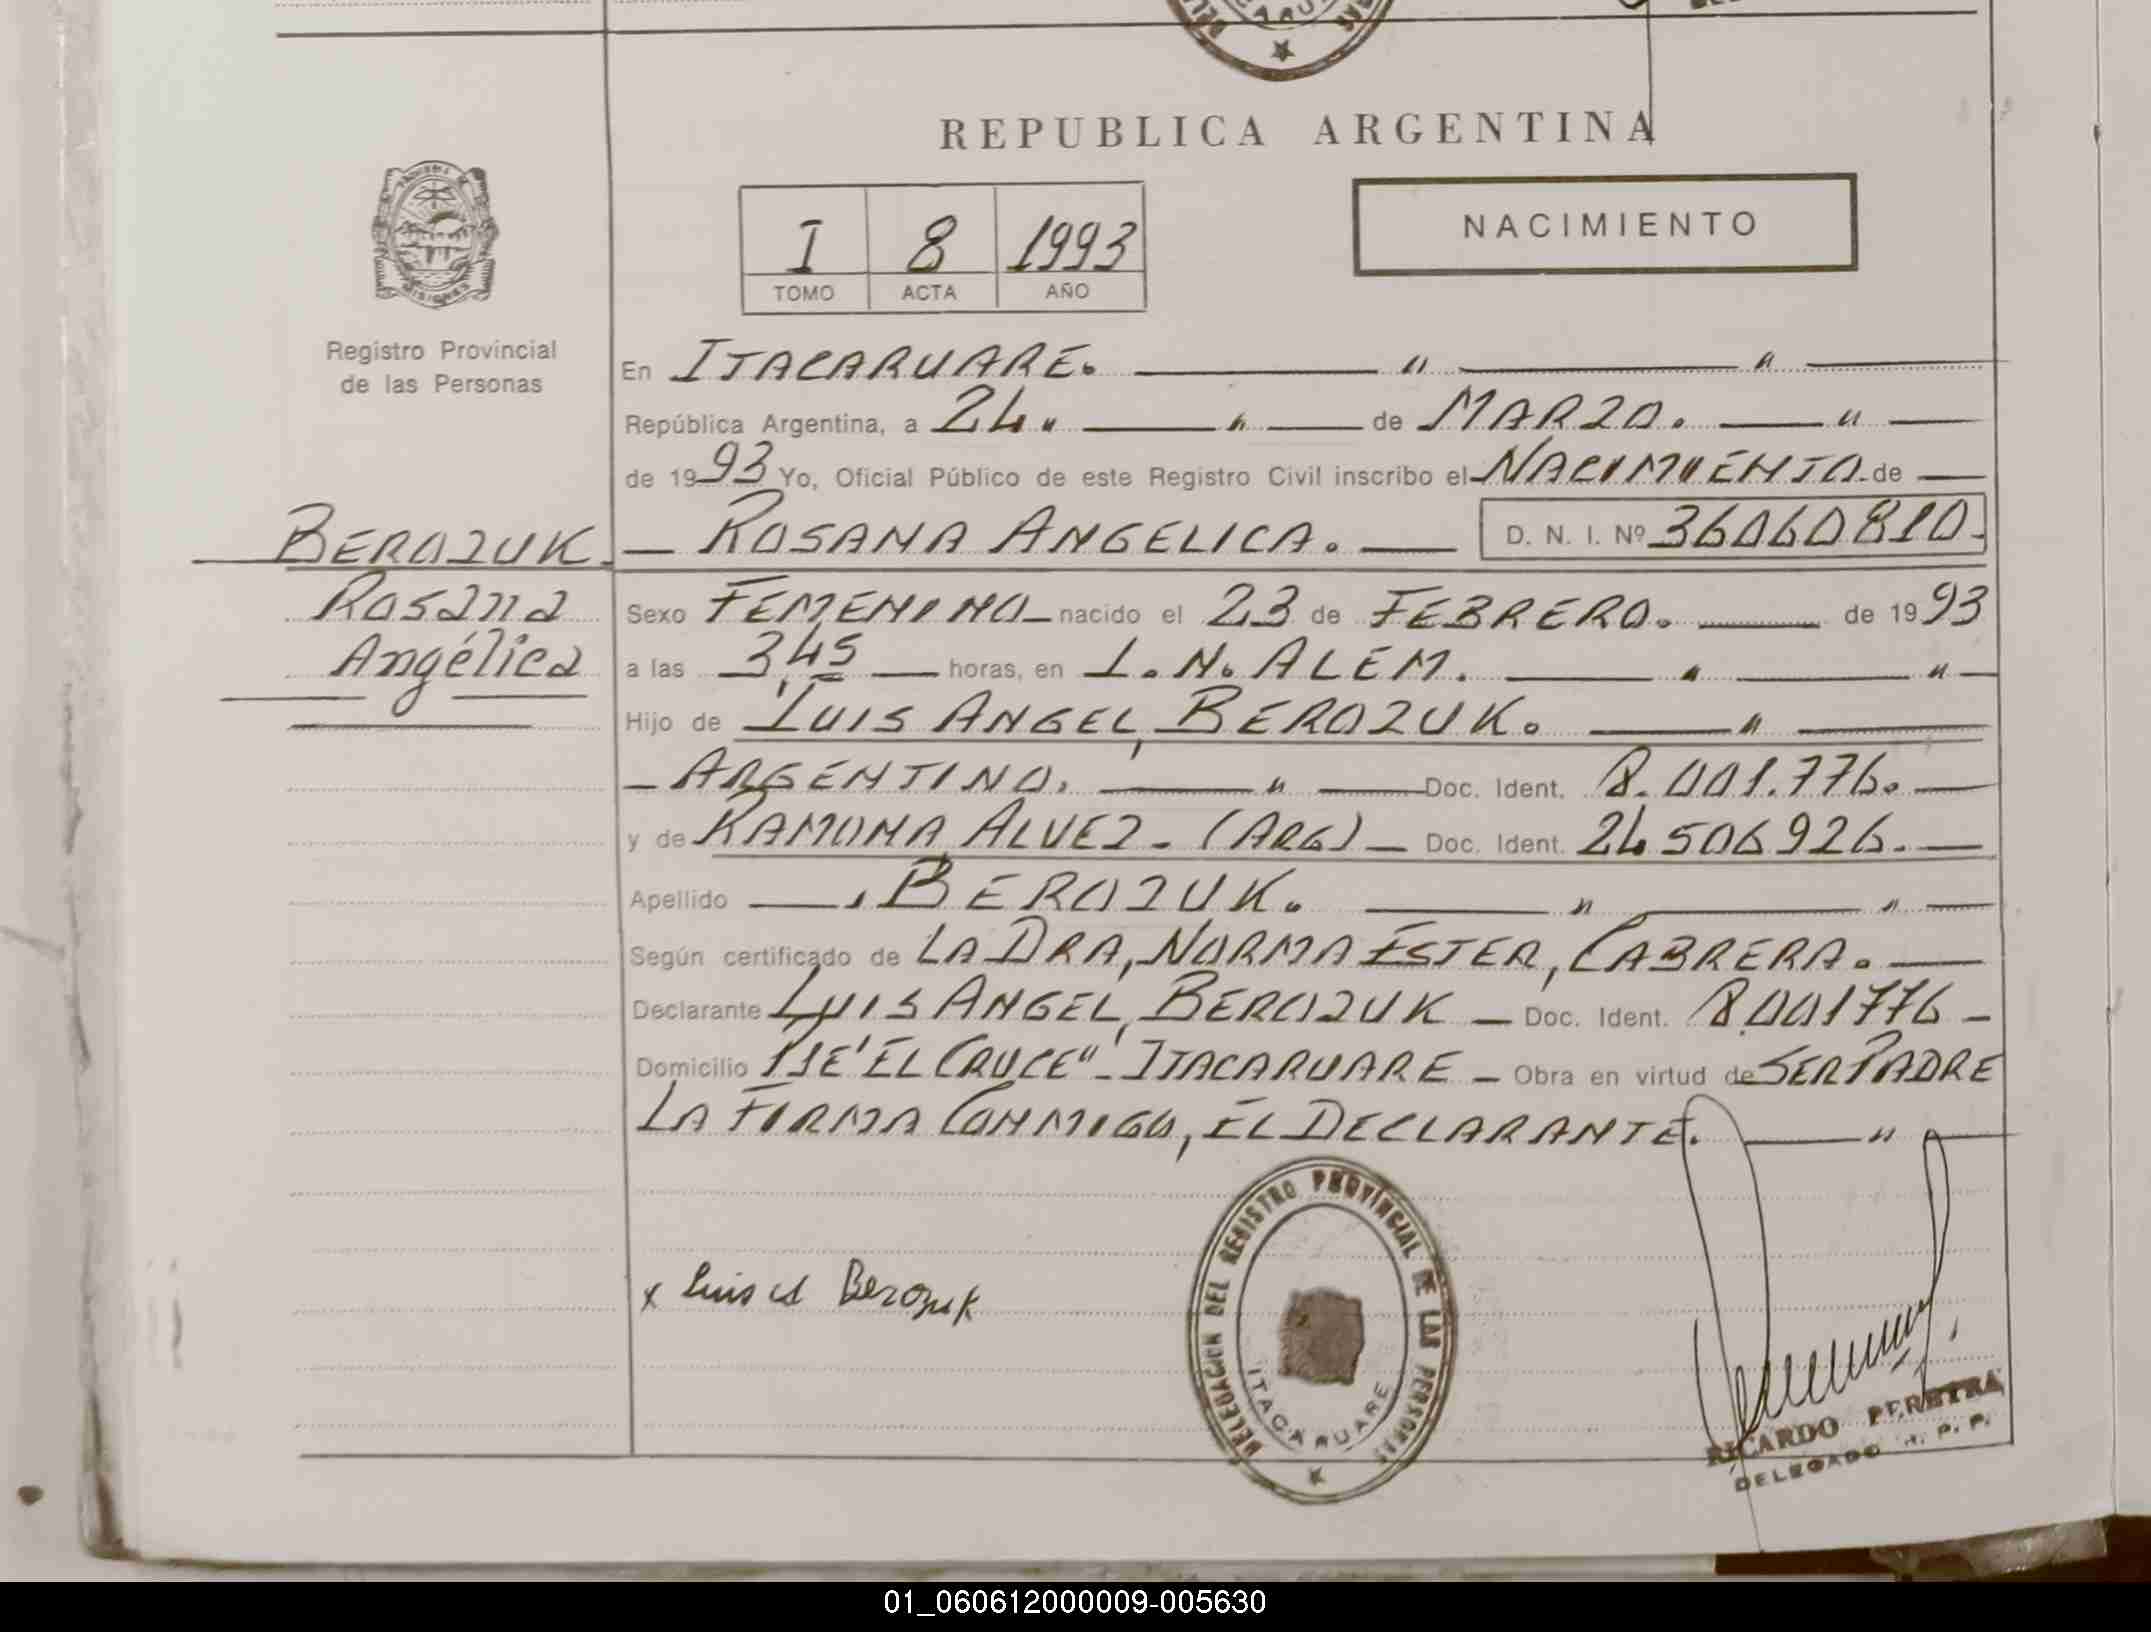 REPUBLICA ARGENTINA
I 8 1993
TOMO ACTA AÑO
NACIMIENTO
MISIONES
Registro Provincial
de las Personas
En ITACARUARE. " "
República Argentina, a 24" " de MARZO. "
de 1993 Yo, Oficial Público de este Registro Civil inscribo el NACIMIENTO de
BEROZUK. ROSANA ANGELICA. D. N. I. Nº 36060810.
Rosana
Angélica
Sexo FEMENINO nacido el 23 de FEBRERO. de 1993
a las 3,45 horas, en L. N. ALEM. " "
Hijo de LUIS ANGEL, BEROZUK. "
ARGENTINO. " Doc. Ident. 8.001.776.
y de RAMONA ALVEZ. (ARG) Doc. Ident. 24506926.
Apellido BEROZUK. " "
Según certificado de LA DRA, NORMA ESTER, CABRERA.
Declarante LUIS ANGEL, BEROZUK Doc. Ident. 8.001776
Domicilio "EL CRUCE" - ITACARUARE Obra en virtud de SER PADRE
LA FIRMA CONMIGO, EL DECLARANTE. "
x Luis A Berozuk
DELEGACION DEL REGISTRO PROVINCIAL DE LAS PERSONAS
ITACARUARE
RICARDO PEREYRA
DELEGADO R. P. P.
01_060612000009-005630